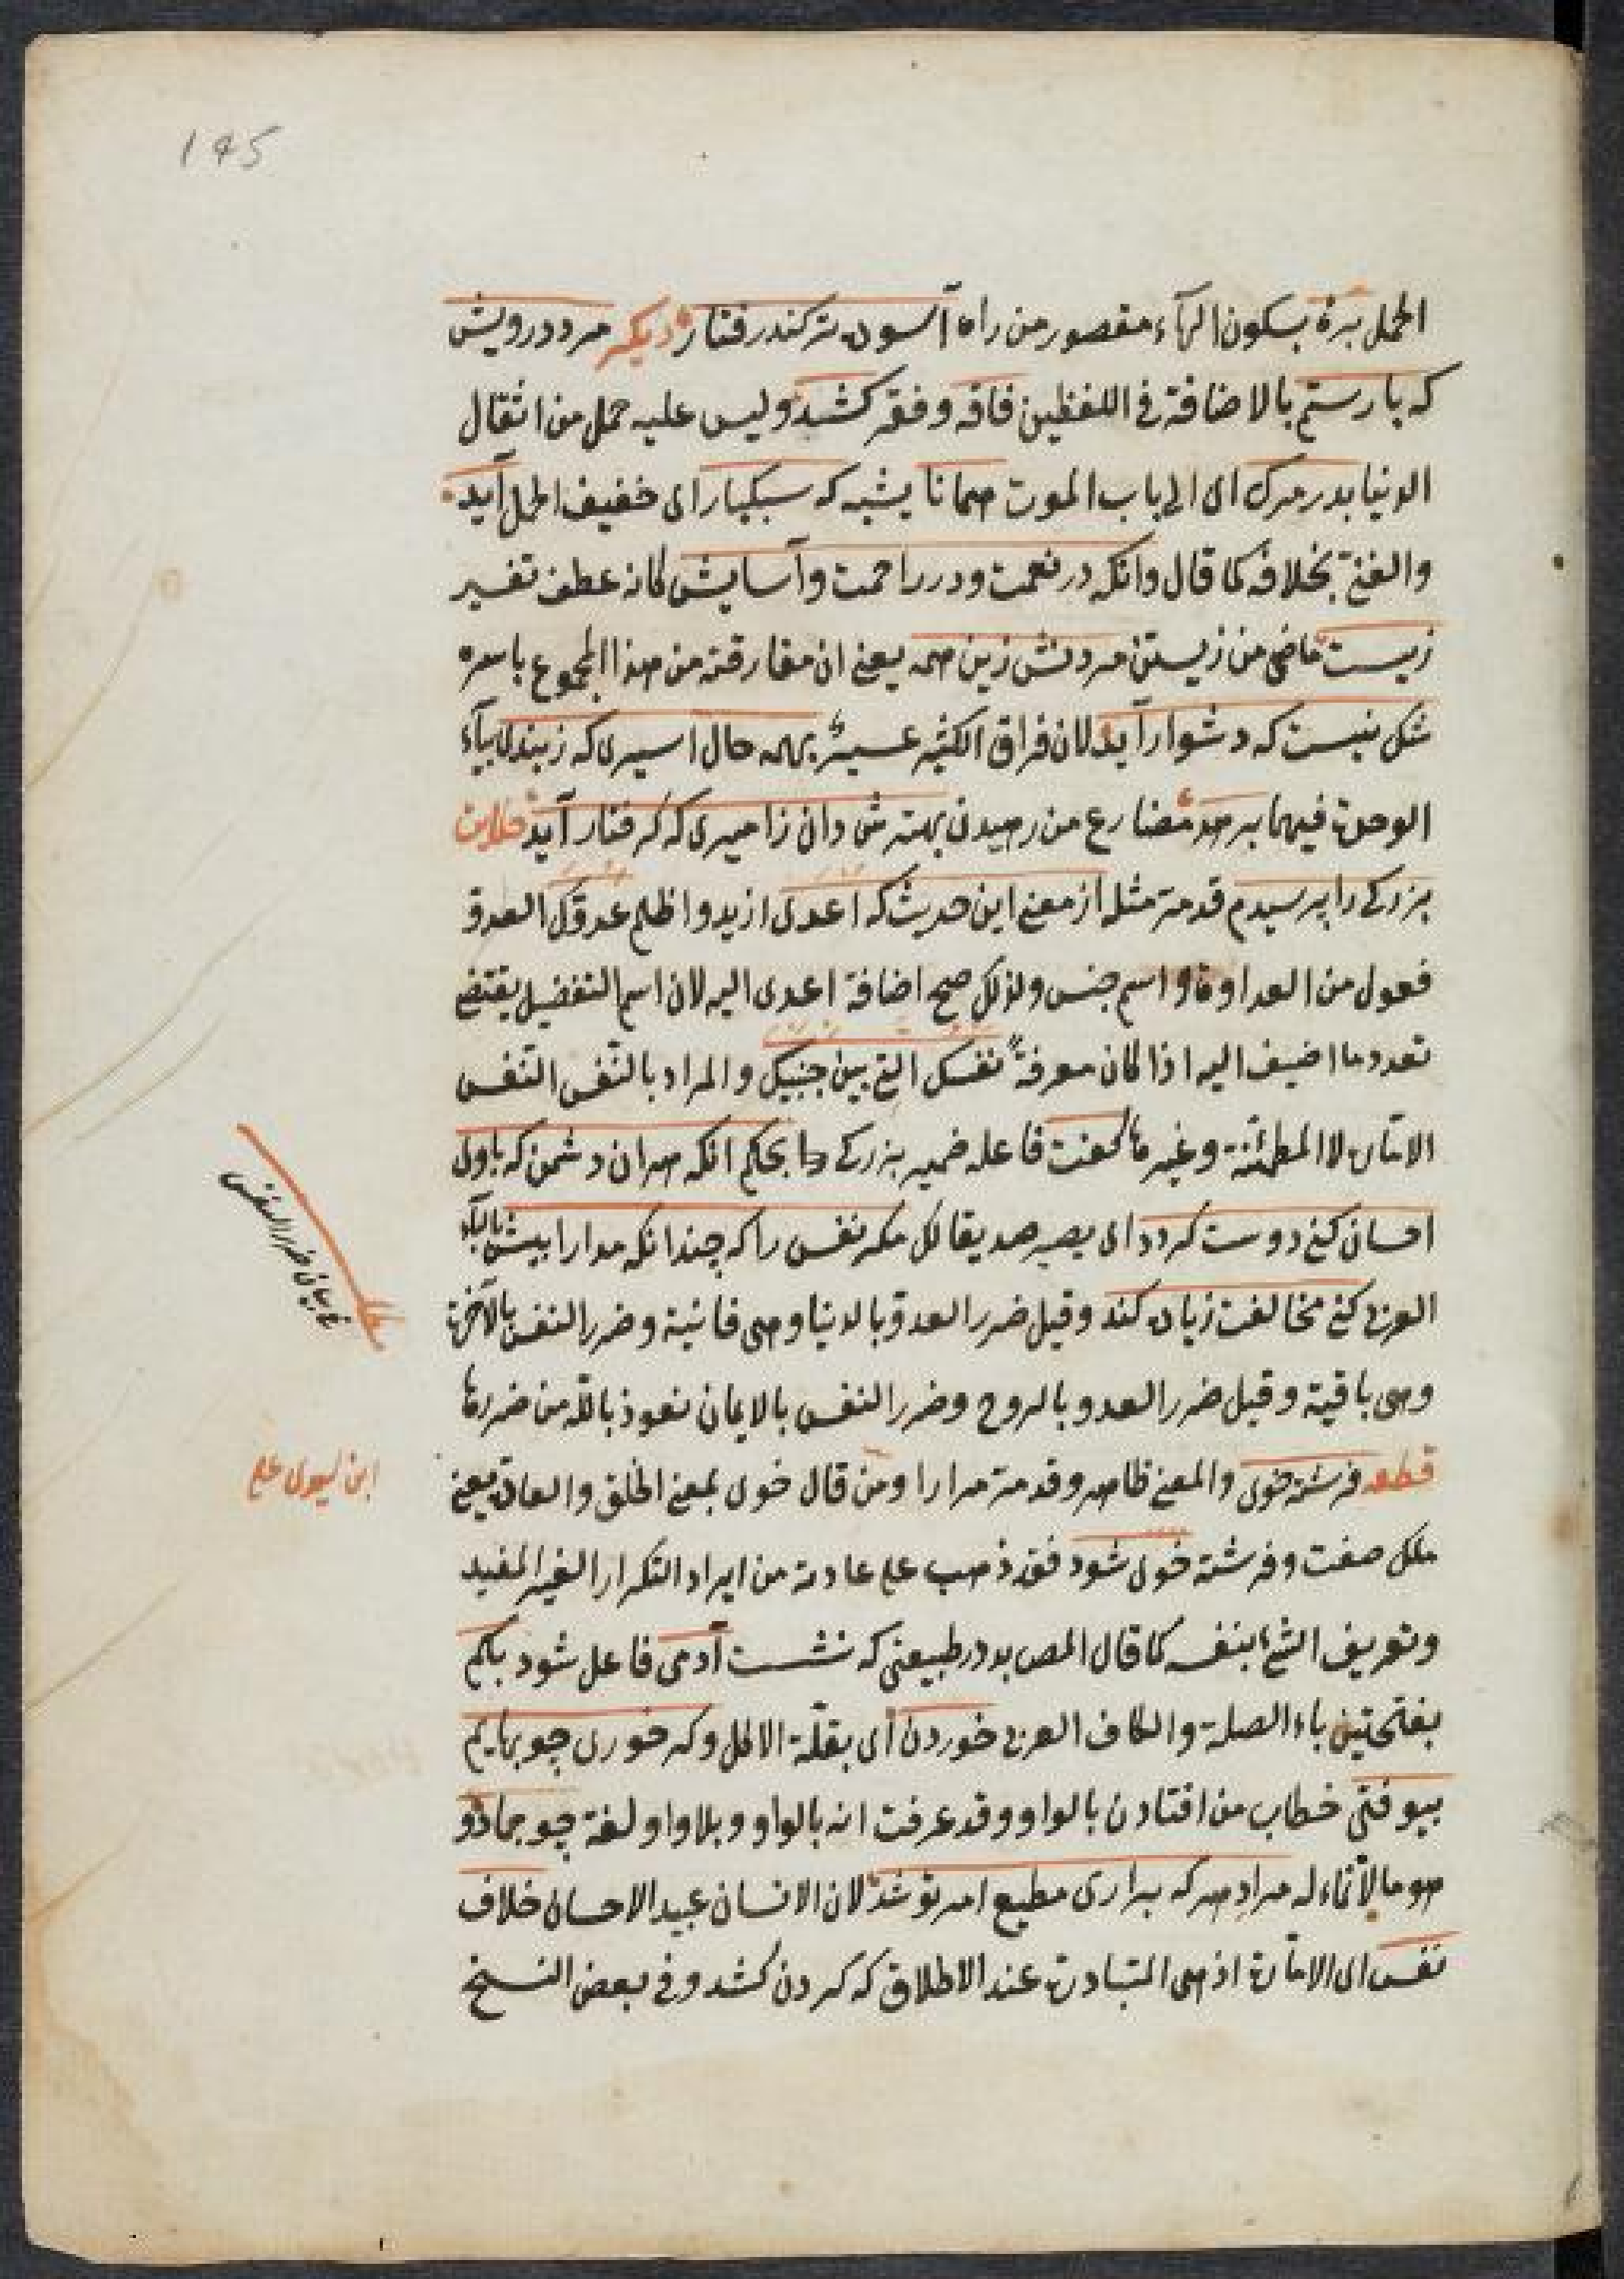 145
الحمل بره بسكون الهآء مقصور من راه آسوده تركند رفتار ديكر مرد درويش
كه بار ستم بالاضافة فى اللفظين فاقه وفقر كشيد وليس عليه حمل من اثقال
الدنيا بدر مرك اى الى باب الموت همانا يشبه كه سبكبار اى خفيف الحمل آيد
والغنى بخلافه كما قال وانكه در نعمت ودر راحت وآسايش كانه عطف تفسير
زيست ماضى من زيستن مردنش زين همه يعنى ان مفارقته من هذا المجموع باسره
شك نيست كه دشوار آيد لان فراق الكثير عسير بهمه حال اسيرى كه زبندى بياء
الوحدة فيهما برهد مضارع من رهيدن بهتر ش دان زاميرى كه كرفتار آيد حكايت
بزركى را پرسيدم قد مر مثله از معنى اين حديث كه اعدى ازيد واظلم عدوّك العدو
فعول من العداوة واسم جنس ولذلك صح اضافة اعدى اليه لان اسم التفضيل يقتضى
تعدد ما اضيف اليه اذا كان معرفة نفسك التى بين جنبيك والمراد بالنّفس النّفس
الامّاره لا المطمئنّة وغيرها كفت فاعله ضمير بزركى را بحكم انكه هر ان دشمن كه باوى
احسان كنى دوست كردد اى يصير صديقا لك مكر نفس را كه چندانكه مدارا بيش بالباء
العربى كنى مخالفت زياده كند وقيل ضرر العدو بالدنيا وهى فانية وضرر النفس بالآخرة
وهى باقية وقيل ضرر العدو بالروح وضرر النفس بالايمان نعوذ بالله من ضررها
قطعه فرشته خوى والمعنى ظاهر وقد مر مرارا ومن قال خوى بمعنى الخلق والعادة يعنى
ملك صفت وفرشته خوى شود فقد ذهب على عادته من ايراد التكرار الغير المفيد
وتعريف الشئ بنفسه كما قال المص بد در طبيعتى كه نشست آدمى فاعل شود بكم
بفتحتين باء الصلة والكاف العربى خوردن اى بقلة الاكل وكر خورى چو بهايم
بيوفتى خطاب من افتادن بالواو وقد عرفت انه بالواو وبلا واو لغة چو جماد و
هو ما لا نماء له مراد هر كه برارى مطيع امر تو شد لان الانسان عبيد الاحسان خلاف
نفس اى الامّارة اذ هى المتبادرة عند الاطلاق كه كردن كشد وفى بعض النسخ
بيان ضرر النفس
ابن ليوى على